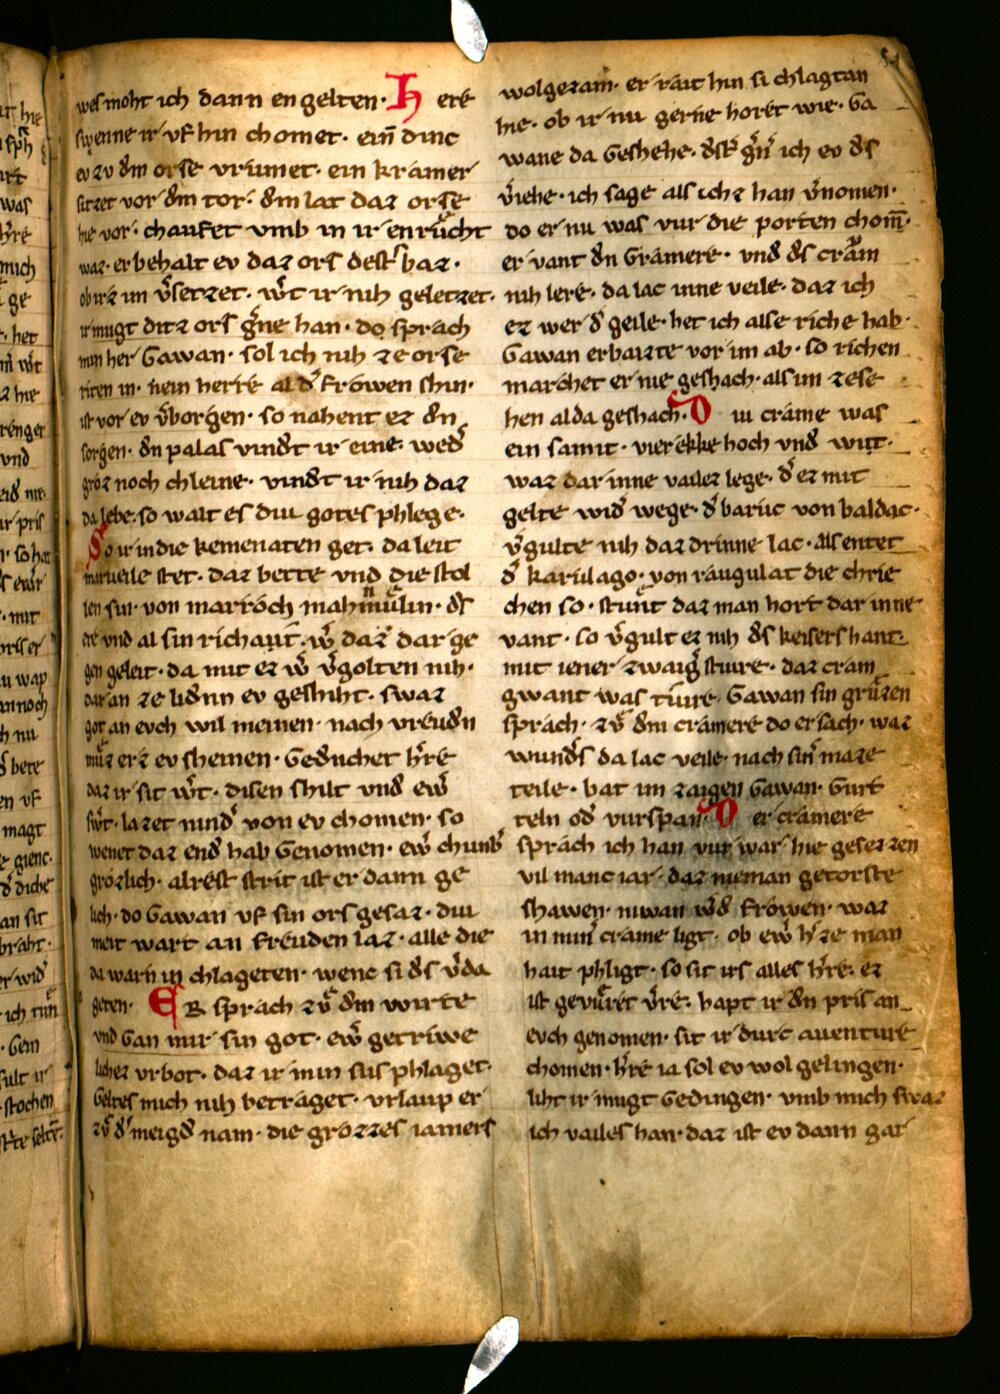 wes moht ich dann en gelten · H ere
swenne ir vf hin chomet · ein dinc
ev zv dm orse vrumet · ein kramer
sitzet vor dm tor · dm lat daz orse
hie vor · chaufet vmb in ir enrucht
waz · er behalt ev daz ors dester baz ·
ob irz im v̾setzet · w̾t ir nih geletzet ·
ir mugt ditz ors g̾ne han · do sprach
min her Gawan · sol ich nih ze orse
riten in · nein herre al d̾ frowen shin ·
ist vor ev v̾borgen · so nahent ez dn
sorgen · dn palas vindt ir eine · wed̾
groz noch chleine · vindt ir nih daz
da lebe · so walt es div gotes phlege ·
So ir in die kemenaten get · da leit
mirveile stet · daz bette vnd die stol
len sin · von marroch mahmulin · ds
ere vnd al sin richaut · w̾ daz dar ge
gen geleit · da mit ez w̾ v̾golten nih ·
dar an ze lidnn ev geshiht · swaz
got an evch wil meinen · nach vreudn
muz erz ev sheinen · Geduchet h̾re
daz ir sit w̾t · disen shilt vnd ew̾
sw̾t · lazet nind̾ von ev chomen · so
wenet daz end hab Genomen · ew̾ chumb̾
grozlich · alrest strit ist er dann ge
lich · do Gawan vf sin ors gesaz · div
meit wart an freuden laz · alle die
da warn in chlageten · wenc si ds v̾da
geten · ER sprach zv dm wirte
vnd Gan mir sin got · ew̾ getriwe
lichez vrbot · daz ir min sus phlaget ·
Geltes mich nih betraget · vrlaup er
zv d̾ meigd nam · die grozzes iamers
wolgezam · er rait hin si chlagtan
hie · ob ir nu gerne horet wie · Ga
wane da Geshehe · dst̾ g̾n ich ev ds
v̾iehe · ich sage als ichz han v̾nomen ·
do er nu was vur die porten chom̅ ·
er vant dn Gramere · vnd ds cram
nih lere · da lac inne veile · daz ich
ez wer d̾ geile · het ich alse riche hab ·
Gawan erbaizte vor im ab · so richen
marchet er nie geshach · als im zese
hen alda geshach · D iu crame was
ein samit · vierekke hoch vnd wit ·
waz dar inne vailez lege · d̾ ez mit
gelte wid̾ wege · d̾ baruc von baldac ·
v̾gulte nih daz drinne lac · als entet
d̾ katulago · von raugulat die chrie
chen so · stunt daz man hort dar inne
vant · so v̾gult ez nih ds keisers hant ·
mit iener zwaig̾ stuire · daz cram
gwant was tiure · Gawan sin gruzen
sprach · zv dm cramere do er sach · waz
wunds da lac veile · nach sin̾ maze
teile · bat im zaigen Gawan · Gurt
teln od̾ vurspan · D er cramere
sprach ich han vur war hie gesezzen
vil manc iar · daz nieman getorste
shawen · niwan w̾d frowen · waz
in min̾ crame ligt · ob ew̾ h̾ze man
hait phligt · so sit irs alles h̾re · ez
ist gevuret v̾re · hapt ir dn pris an
evch genomen · sit ir durc auenture
chomen · h̾re ia sol ev wol gelingen ·
liht ir mugt Gedingen · vmb mich swaz
ich vailes han · daz ist ev dann gar